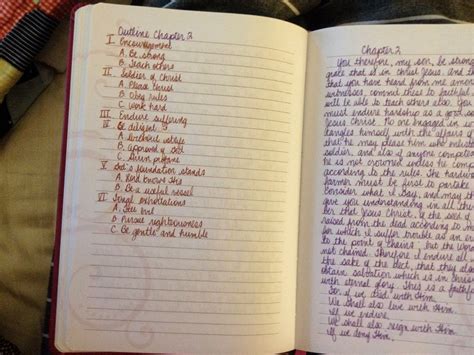 Outline Chapter 2
I. Encouragement
A. Be strong
B. Teach others
II. Soldier of Christ
A. Please Christ
B. Obey rules
C. Work hard
III. Endure suffering
IV. Be diligent
A.
B. Approved of God
C. Shun profane
V. God's foundation stands
A. Lord knows His
B. Be a useful vessel
VI. Final exhortations
A. Flee evil
B. Pursue righteousness
C. Be gentle and humble
Chapter 2
You therefore, my son, be strong
grace that is in Christ Jesus. And th
that you have heard from me among
witnesses, commit these to faithful
will be able to teach others also. You
must endure hardship as a good so
Jesus Christ. No one engaged in w
tangles himself with the affairs o
that he may please him who enlist
soldier. And also if anyone compet
he is not crowned unless he comp
according to the rules. The hardwo
farmer must be first to partake
Consider what I say, and may th
give you understanding in all thi
ber that Jesus Christ, of the seed o
from the dead according to my
for which I suffer trouble as an ev
to the point of chains; but the word
not chained. Therefore I endure all
the sake of the elect, that they als
obtain salvation which is in Chris
with eternal glory. This is a faithf
For if we died with Him
We shall also live with Him
If we endure,
We shall also reign with Him
If we deny Him,